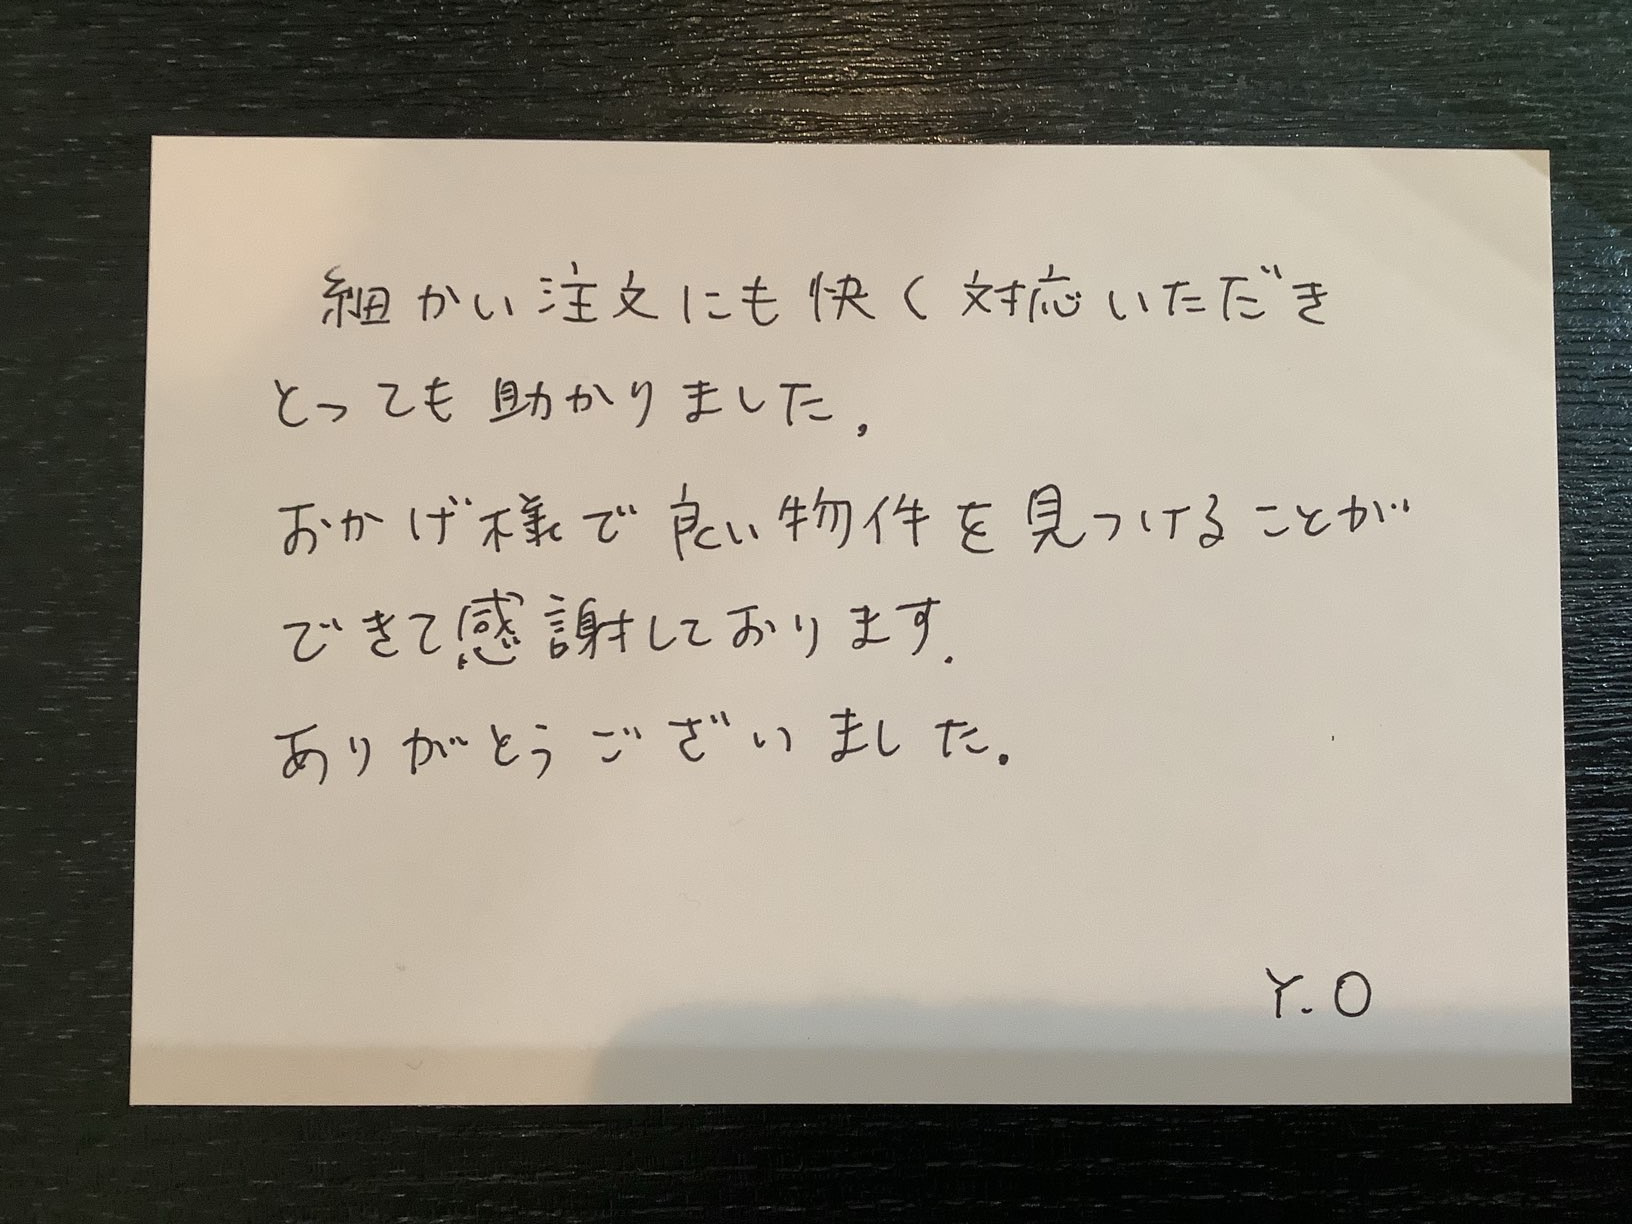 細かい注文にも快く対応いただき
とっても助かりました。
おかげ様で良い物件を見つけることが
できて感謝しております。
ありがとうございました。
Y.O